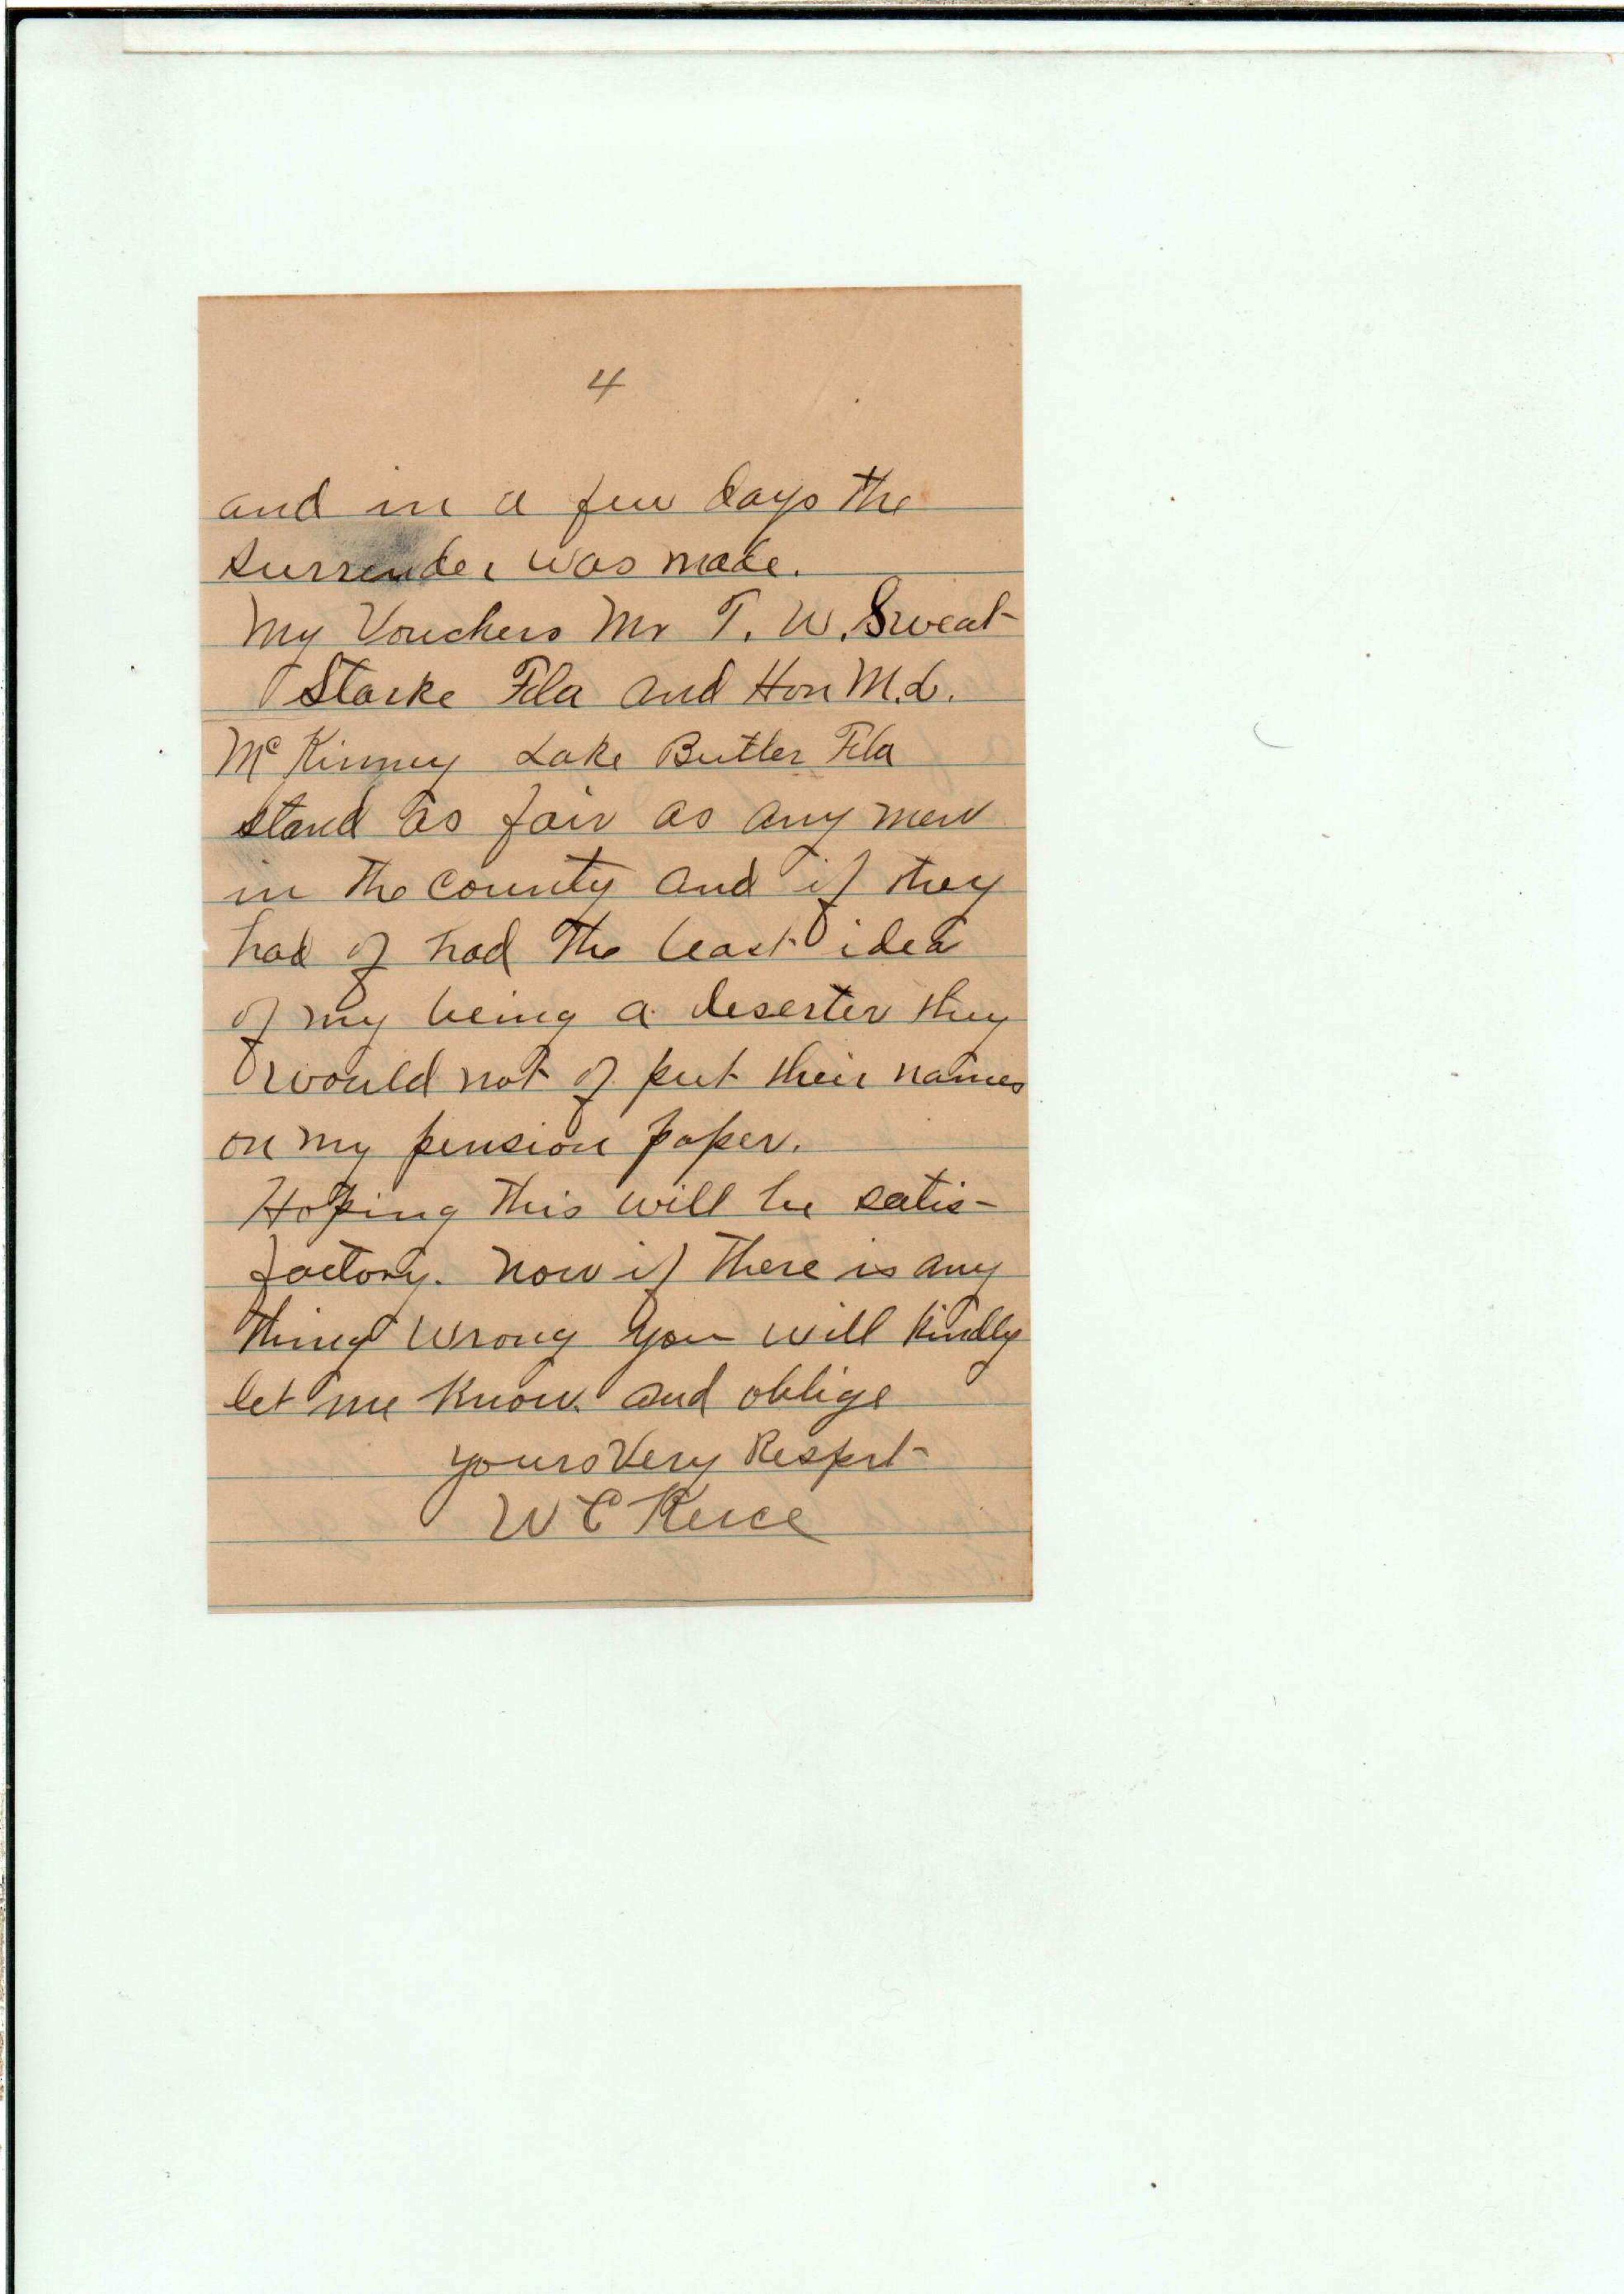 4
and in a few days the
surrender was made.
My Vouchers Mr T. W. Sweat
Starke Fla and Hon M. L.
McKinney Lake Butler Fla
stand as fair as any men
in the county and if they
had of had the least idea
of my being a deserter they
would not of put their names
on my pension paper.
Hoping this will be satis-
factory. Now if there is any
thing wrong you will kindly
let me know. and oblige
yours Very Respect
W C